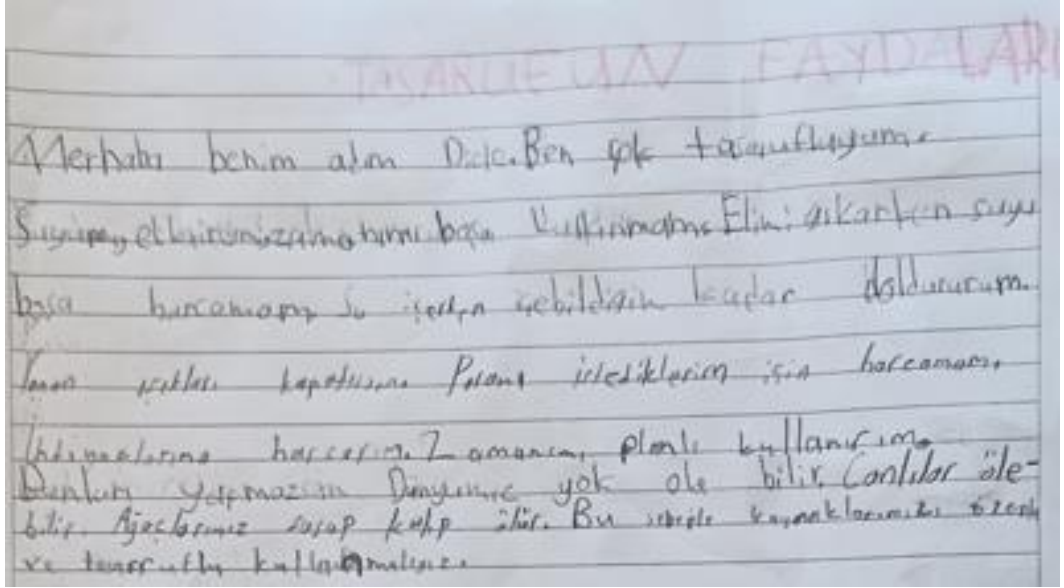 TASARRUFUN FAYDALARI
Merhaba benim adım Dicle. Ben çok tasarrufluyum.
boşa kullanmam. Elimi yıkarken suyu
boşa harcamam, su içerken içebildiğim kadar doldururum.
Yanan ışıkları kapatırım. Paramı istediklerim için harcamam.
İhtiyaçlarıma harcarım. Zamanımı planlı kullanırım.
Bunları yapmazsam Dünyamız yok ola bilir. Canlılar öle-
bilir. Ağaçlarımız susup kalıp ölür. Bu sebeple kaynaklarımızı özenli
ve tasarruflu kullanmalıyız.